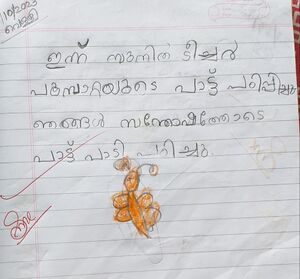 10/2023
വെള്ളി
ഇന്ന് സുനിത ടീച്ചർ
പൂമ്പാറ്റയുടെ പാട്ട് പഠിപ്പിച്ചു
ഞങ്ങൾ സന്തോഷത്തോടെ
പാട്ട് പാടി പഠിച്ചു.